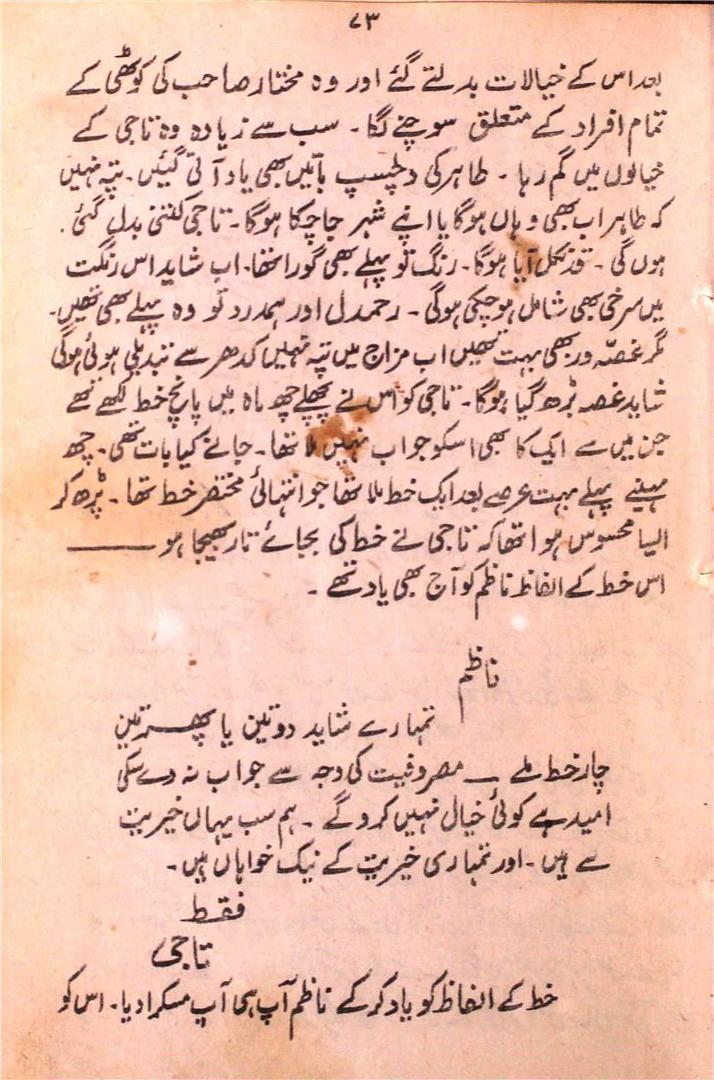 ۷۳
بعد اس کے خیالات بدلتے گئے اور وہ مختار صاحب کی کوٹھی کے
تمام افراد کے متعلق سوچنے لگا۔ سب سے زیادہ وہ تاجی کے
خیالوں میں گم رہا۔ طاہر کی دلچسپ باتیں بھی یاد آتی گئیں۔ پتہ نہیں
کہ طاہر اب بھی وہاں ہوگا یا اپنے شہر جا چکا ہوگا۔ تاجی کتنی بدل گئی
ہوں گی۔ قد نکل آیا ہوگا۔ رنگ تو پہلے بھی گورا تھا۔ اب شاید اس رنگت
میں سرخی بھی شامل ہو چکی ہوگی۔ رحمدل اور ہمدرد تو وہ پہلے بھی تھیں۔
مگر غصّہ ور بھی بہت تھیں اب مزاج میں پتہ نہیں کدھر سے تبدیلی ہوئی ہوگی
شاید غصہ بڑھ گیا ہوگا۔ تاجی کو اس نے پچھلے چھ ماہ میں پانچ خط لکھے تھے
جن میں سے ایک کا بھی اسکو جواب نہیں ملا تھا۔ جانے کیا بات تھی۔ چھ
مہینے پہلے بہت عرصے بعد ایک خط ملا تھا جو انتہائی مختصر خط تھا۔ پڑھ کر
ایسا محسوس ہوا تھا کہ تاجی نے خط کی بجائے تار بھیجا ہو ——
اس خط کے الفاظ ناظم کو آج بھی یاد تھے۔
ناظم
تمہارے شاید دو تین یا پھر تین
چار خط ملے — مصروفیت کی وجہ سے جواب نہ دے سکی
امید ہے کوئی خیال نہیں کرو گے۔ ہم سب یہاں خیریت
سے ہیں۔ اور تمہاری خیریت کے نیک خواہاں ہیں۔
فقط
تاجی
خط کے الفاظ کو یاد کر کے ناظم آپ ہی آپ مسکرا دیا۔ اس کو